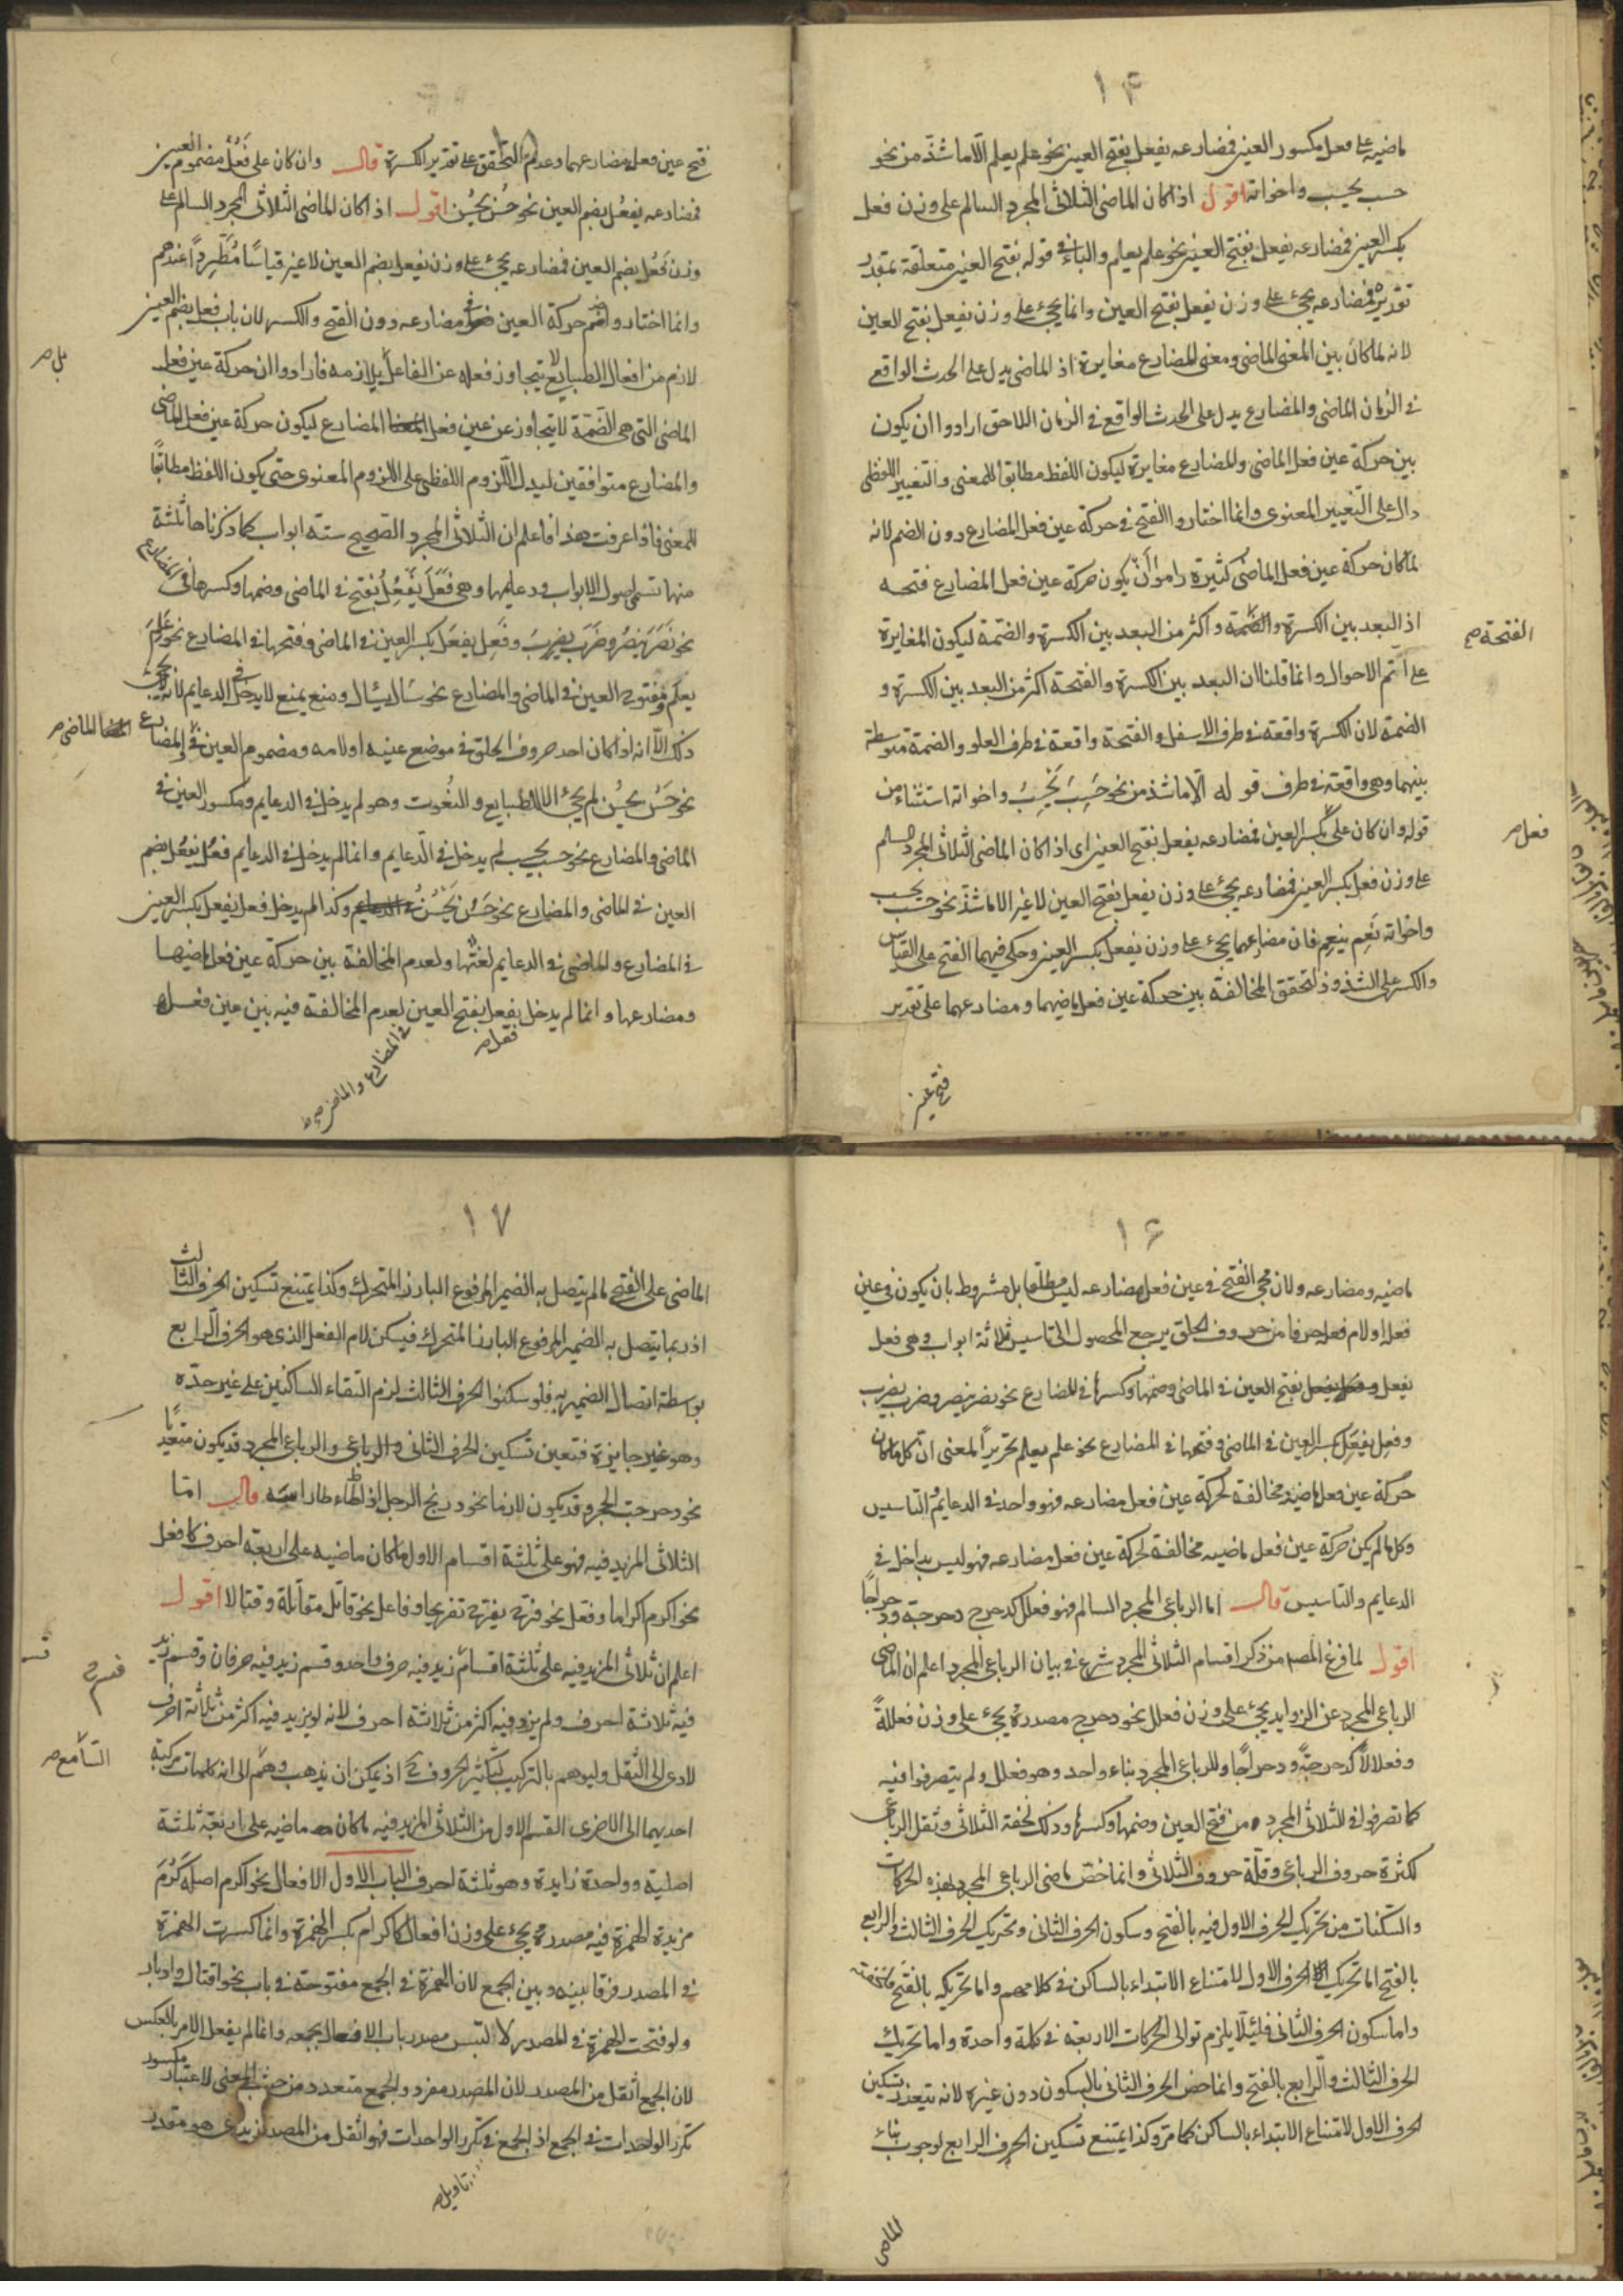 ١۴
ماضيه على فعل مكسور العين فمضارعه يفعل بفتح العين نحو علم يعلم الّا ما شذّ من نحو
حسب يحسب واخواته اقول اذا كان الماضى الثلاثى المجرد السالم على وزن فعل
بكسر العين فمضارعه يفعل بفتح العين نحو علم يعلم والباء فى قوله بفتح العين متعلقة بمقدر
تقديره فمضارعه يجىء على وزن يفعل بفتح العين وانما يجىء على وزن يفعل بفتح العين
لانه لما كان بين المعنى الماضى ومعنى المضارع مغايرة اذ الماضى يدل على الحدث الواقع
فى الزمان الماضى والمضارع يدل على الحدث الواقع فى الزمان اللاحق ارادوا ان يكون
بين حركة عين فعل الماضى والمضارع مغايرة ليكون اللفظ مطابقا للمعنى والتغيير اللفظى
دال على التغيير المعنوى وانما اختاروا الفتح فى حركة عين فعل المضارع دون الضم لانه
لما كان حركة عين فعل الماضى كثيرة راموا أنْ يكون حركة عين فعل المضارع فتحه
اذ البعد بين الكسرة والضمة واكثر من البعد بين الكسرة والضمة ليكون المغايرة
الفتحة صح
على اتم الاحوال وانما قلنا ان البعد بين الكسرة والفتحة اكثر من البعد بين الكسرة و
الضمة لان الكسرة واقعة فى طرف الاسفل والفتحة واقعة فى طرف العلو والضمة متوسطة
بينهما وهى واقعة فى طرف قوله الّا ما شذ من نحو حَسِبَ يَحْسِبُ واخواته استثناء من
قوله وان كان على بكسر العين فمضارعه يفعل بفتح العين اى اذا كان الماضى الثلاثى المجرد السالم
فعل صح
على وزن فعل بكسر العين فمضارعه يجىء على وزن يفعل بفتح العين لا غير الا ما شذّ نحو حسب يحسب
واخواته نَعِم ينعِم فان مضارعهما يجىء على وزن يفعل بكسر العين وحكى فيهما الفتح على القياس
والكسر على الشذوذ لتحقق المخالفة بين حركة عين فعل ماضيهما ومضارعهما على تقدير
فتح عين
فتح عين فعل مضارعهما وعدم التحقق على تقدير الكسرة قال وان كان على فَعُل مضموم العين
فمضارعه يفعُل بضم العين نحو حُسن يحسُن اقول اذا كان الماضى الثلاثى المجرد السالم على
وزن فَعُل بضم العين فمضارعه يجىء على وزن يفعل بضم العين لا غير قياسًا مُطّرِدًا عندهم
وانما اختاروا ضم حركة العين فى مضارعه دون الفتح والكسر لان باب فعل بضم العين
لازم من افعال الطبايع لا يتجاوز فعله عن الفاعل يلازمه فارادوا ان حركة عين فعل
بل صح
الماضى التى هى الضمة لا يتجاوز عن عين فعل المضارع ليكون حركة عين فعل الماضى
والمضارع متوافقين ليدل اللزوم اللفظى على اللزوم المعنوى حتى يكون اللفظ مطابقًا
للمعنى فاذا عرفت هذا فاعلم ان الثلاثى المجرد الصحيح ستة ابواب كما ذكرناها ثلثة
منها تسمى اصول الابواب ودعايمها وهى فَعَلَ يَفْعِلُ بفتح فى الماضى وضمها وكسرها فى المضارع
نحو نَصَرَ ينصُرُ وضَرَب يضرِبَ وفَعِل يفعَل بكسر العين فى الماضى وفتحها فى المضارع نحو عَلِمَ
يعلَم ومفتوح العين فى الماضى والمضارع نحو سأل يسئال ومنع يمنع لا يدخل فى الدعايم لانه لا يجىء
ذلك الّا انه اذا كان احد حروف الحلق فى موضع عينه او لامه ومضموم العين فى المضارع
الماضى صح
نحو حَسُنَ يحسُن لم يجىء الا للطبايع والنعُوت وهو لم يدخل فى الدعايم ومكسور العين فى
الماضى والمضارع نحو حسب يحسب لم يدخل فى الدّعايم وانما لم يدخل فى الدعايم فعُل يفعُل بضم
العين فى الماضى والمضارع نحو حَسُنَ يَحْسُنُ وكذا لم يدخل فعل يفعل بكسر العين
فى المضارع والماضى فى الدعايم لقلتها ولعدم المخالفة بين حركة عين فعل ماضيها
ومضارعها وانما لم يدخل يفعل بفتح العين لعدم المخالفة فيه بين عين فعله
فعل صح
فى المضارع والماضى صح
١۶
ماضيه ومضارعه ولان مجىء الفتح فى عين فعل مضارعه ليس مطلقا بل مشروط بان يكون فى عين
فعله او لام فعله حرفا من حروف الحلق يرجع المحصول الى تاسيس ثلاثة ابواب وهى فعل
يفعل بفتح العين فى الماضى وضمها وكسرها فى المضارع نحو نصر ينصر وضرب يضرب
وفعِل يفعَل بكسر العين فى الماضى وفتحها فى المضارع نحو علم يعلم تحريرًا لمعنى ان كل ما كان
حركة عين فعل ماضيه مخالفة لحركة عين فعل مضارعه فهو واحد فى الدعايم والتاسيس
وكل ما لم يكن حركة عين فعل ماضيه مخالفة لحركة عين فعل مضارعه فهو ليس بداخل فى
الدعايم والتاسيس قال اما الرباعى المجرد السالم فهو فعلل كدحرج دحرجة ودحراجًا
اقول لما فرغ المصـ من ذكر اقسام الثلاثى المجرد شرع فى بيان الرباعى المجرد اعلم ان الماضى
الرباعى المجرد عن الزوايد يجىء على وزن فعلل نحو دحرج مصدرهُ يجىء على وزن فعللةً
وفعلالاً كدحرجةً ودحراجًا وللرباعى المجرد بناء واحد وهو فعلل ولم يتصرفوا فيه
كما تصرفوا فى الثلاثى المجرد من فتح العين وضمها وكسرها وذلك لخفة الثلاثى وثقل الرباعى
لكثرة حروف الرباعى وقلّة حروف الثلاثى وانما خصّ ماضى الرباعى المجرد بهذه الحركات
والسكنات من تحريك الحرف الاول فيه بالفتح وسكون الحرف الثانى وتحريك الحرف الثالث والرابع
بالفتح اما تحريك الحرف الاول لامتناع الابتداء بالساكن فى كلامهم واما تحريكه بالفتح فلخفته
واما سكون الحرف الثانى فلئلّا يلزم توالى الحركات الاربعة فى كلمة واحدة واما تحريك
الحرف الثالث والرابع بالفتح وانما خصّ الحرف الثانى بالسكون دون غيره لانه يتعذر تسكين
الحرف الاول لامتناع الابتداء بالساكن كما مرّ وكذا يمتنع تسكين الحرف الرابع لوجوب بناء
الماضى
١٧
الماضى على الفتح لما لم يتصل به الضمير المرفوع البارز المتحرك وكذا يمتنع تسكين الحرف الثالث
اذ ربما يتصل به الضمير المرفوع البارز المتحرك فيسكن لام الفعل الذى هو الحرف الرابع
بوسطة اتصال الضمير به فلو سكنوا الحرف الثالث لزم التقاء الساكنين على غير حدّه
وهو غير جايزة فتعين تسكين الحرف الثانى والرباعى والرباعى المجرد قد يكون متعديًا
نحو دحرجت الحجر وقد يكون لازما نحو دربخ الرجل اذا طأطاء راسه قال امّا
الثلاثى المزيد فيه فهو على ثلثة اقسام الاول ما كان ماضيه على اربعة احرف كافعل
نحو اكرم اكراما وفعّل نحو فرّح يفرّح تفريحا وفاعل نحو قاتل مقاتلة وقتالا اقول
اعلم ان ثلاثى المزيد فيه على ثلثة اقسام زيد فيه حرف واحد وقسم زيد فيه حرفان وقسم زيد
قسم صح
فيه ثلاثة احرف ولم يزد فيه اكثر من ثلاثة احرف لانه لو يزيد فيه اكثر من ثلاثة احرف
لادى الى الثقل وليوهم بالتركيب لتكثير الحروف اذ يمكن ان يذهب وهم الى انه كلمات مركبة
السّامع صح
احديهما الى الاخرى القسم الاول من الثلاثى المزيد فيه ما كان ماضيه على اربعة ثلثة
اصلية وواحدة زايدة وهو ثلثة احرف الباب الاول الافعال نحو اكرم اصله كَرُمَ
مزيدة الهمزة فيه مصدره يجىء على وزن افعال كاكرام بكسر الهمزة وانما كسرت الهمزة
فى المصدر فرقا بينه وبين الجمع لان الهمزة فى الجمع مفتوحة فى باب نحو اقتال وادبار
ولو فتحت الهمزة فى المصدر لالتبس مصدر باب الافعال بجمعه وانما لم يفعل الامر بالعكس
لان الجمع اثقل من المصدر لان المصدر مفرد والجمع متعدد من حيث المعنى لاعتبار
تكرر الواحدات فى الجمع اذ الجمع فى تكرر الواحدات فهو اثقل من المصدر
تاويل صح